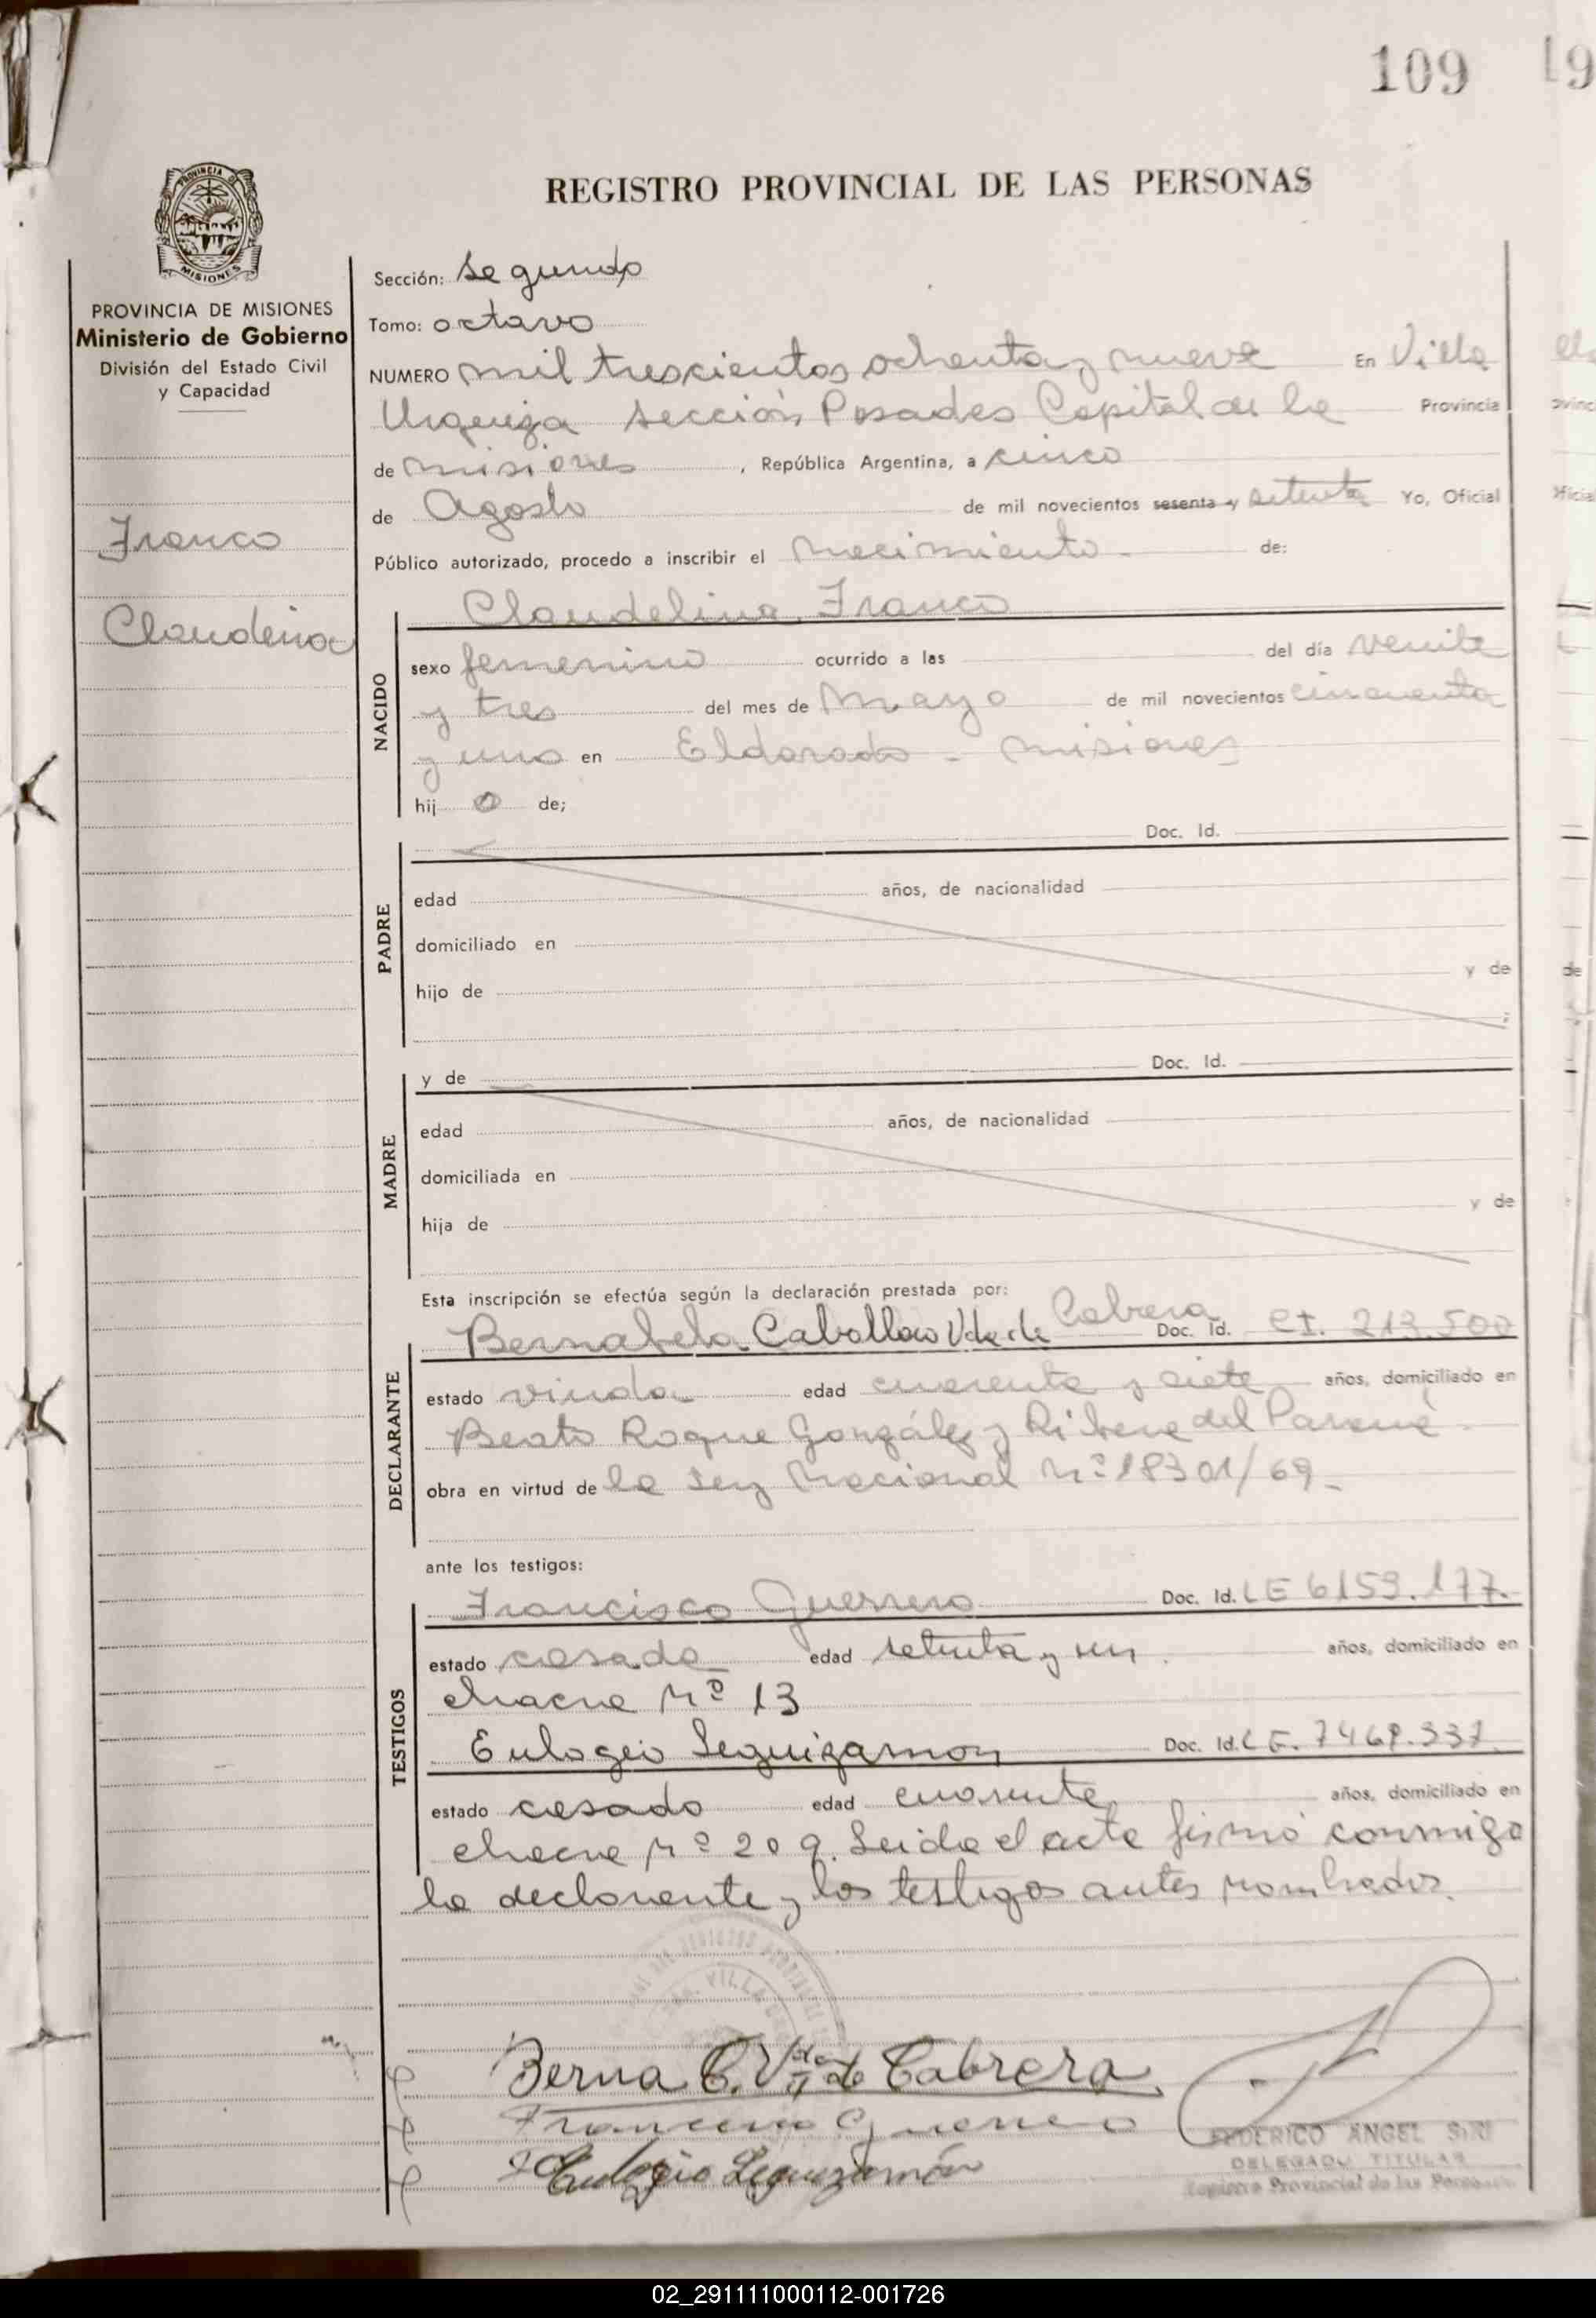 109
19
REGISTRO PROVINCIAL DE LAS PERSONAS
PROVINCIA DE MISIONES
Ministerio de Gobierno
División del Estado Civil
y Capacidad
Franco
Claudelina
Sección: Segundo
Tomo: octavo
NUMERO mil trescientos ochenta y nueve En Villa
Urquiza sección Posadas Capital de la Provincia
de Misiones, República Argentina, a cinco
de Agosto de mil novecientos sesenta y setenta Yo, Oficial
Público autorizado, procedo a inscribir el nacimiento - de:
NACIDO
Claudelina Franco
sexo femenino ocurrido a las del día veinte
y tres del mes de Mayo de mil novecientos cincuenta
y uno en Eldorado - Misiones
hij a de;
PADRE
Doc. Id.
edad años, de nacionalidad
domiciliado en
hijo de y de
MADRE
y de Doc. Id.
edad años, de nacionalidad
domiciliada en
hija de y de
Esta inscripción se efectúa según la declaración prestada por:
DECLARANTE
Bernabela Caballero Vda de Cabrera Doc. Id. CI. 213.500
estado viuda edad cuarenta y siete años, domiciliado en
Beato Roque González y Ribera del Paraná
obra en virtud de la Ley Nacional Nº 18301/69-
ante los testigos:
TESTIGOS
Francisco Guerrero Doc. Id. LE 6159.177.
estado casado edad setenta y un años, domiciliado en
chacra Nº 13
Eulogio Leguizamon Doc. Id. LE. 7469.337
estado casado edad cuarenta años, domiciliado en
chacra Nº 209. Leida el acta firmó conmigo
la declarante y los testigos antes nombrados.
Berna C. Vda de Cabrera
Francisco Guerrero
Eulogio Leguizamón
FEDERICO ANGEL
DELEGADO TITULAR
Registro Provincial de las Personas
02_291111000112-001726